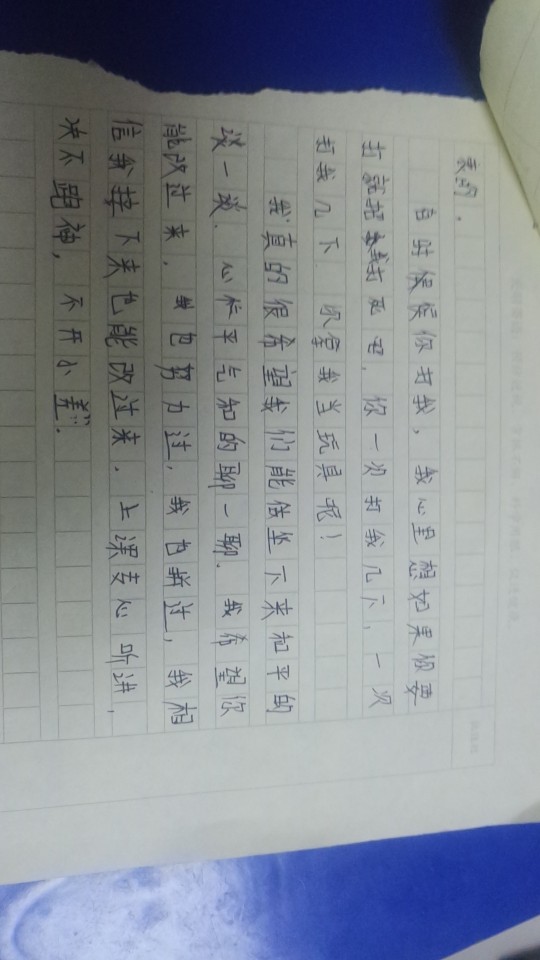 表的。
自时候候你打我，我心里想如果你要
打就把我打死吧，你一次打我几下，一次
打我几下 以掌我当玩具呢！
我真的很希望我们能低坐下来和平的
谈一谈，心仁平乞和的聊一聊，我希望你
能改过来，我也努力过，我也拼过，我相
信我接下来也能改过来，上课专心听讲，
决不跑神，不开小差。